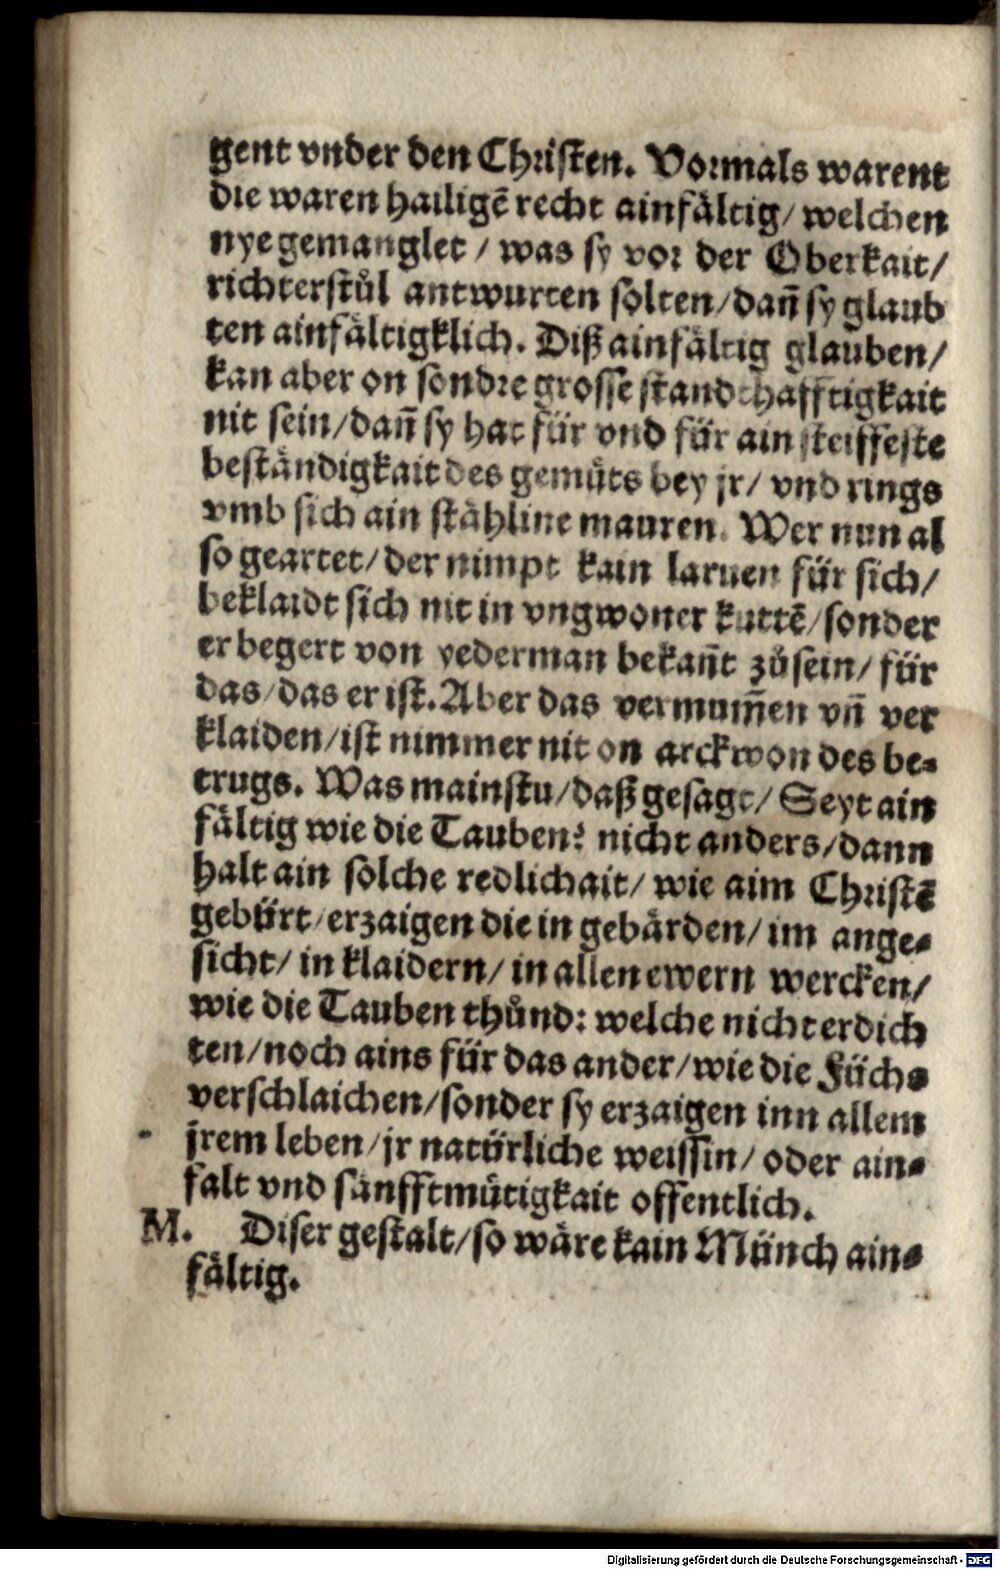 gent vnder den Christen. Vormals warent
die waren hailigē recht ainfältig/ welchen
nye gemanglet / was sy vor der Oberkait/
richterstůl antwurten solten/dañ sy glaub
ten ainfältigklich. Diß ainfältig glauben/
kan aber on sondre grosse standthafftigkait
nit sein/dañ sy hat für vnd für ain steiffeste
beständigkait des gemůts bey jr/ vnd rings
vmb sich ain stähline mauren. Wer nun al
so geartet/der nimpt kain laruen für sich/
beklaidt sich nit in vngwoner kuttē/sonder
er begert von yederman bekañt zůsein/ für
das/das er ist. Aber das vermum̄en vñ ver
klaiden/ist nimmer nit on arckwon des be-
trugs. Was mainstu/daß gesagt/ Seyt ain
fältig wie die Tauben? nicht anders/dann
halt ain solche redlichait/ wie aim Christē
gebürt/erzaigen die in gebärden/ im ange-
sicht/ in klaidern/ in allen ewern wercken/
wie die Tauben thůnd: welche nicht erdich
ten/noch ains für das ander/wie die Füchs
verschlaichen/sonder sy erzaigen inn allem
jrem leben/jr natürliche weissin/ oder ain-
falt vnd sänfftmütigkait offentlich.
M. Diser gestalt/so wäre kain Münch ain-
fältig.
Digitalisierung gefördert durch die Deutsche Forschungsgemeinschaft - DFG